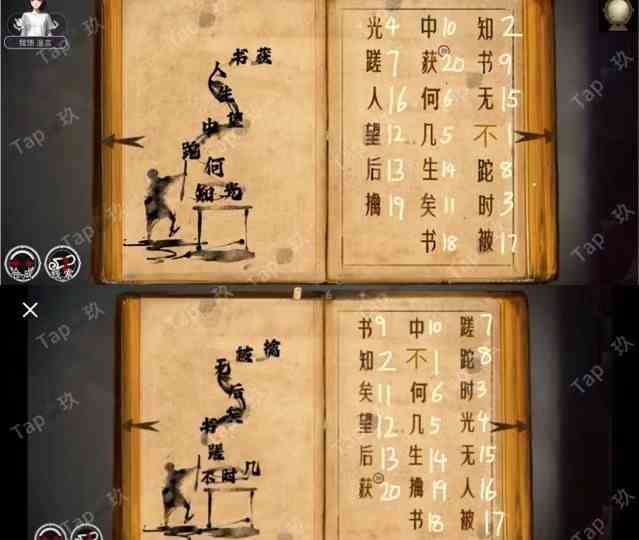 书 获
人
生 使
中
跎
何
知 光
光4 中10 知2
蹉7 获20 书9
人16 何6 无15
望12 几5 不1
后13 生14 跎8
擒19 矣11 时3
书18 被17
擒
被
无
后
矣
书
蹉
不 时 几
书9 中10 蹉7
知2 不1 跎8
矣11 何6 时3
望12 几5 光4
后13 生14 无15
获20 擒19 人16
书18 被17
Tap 玖